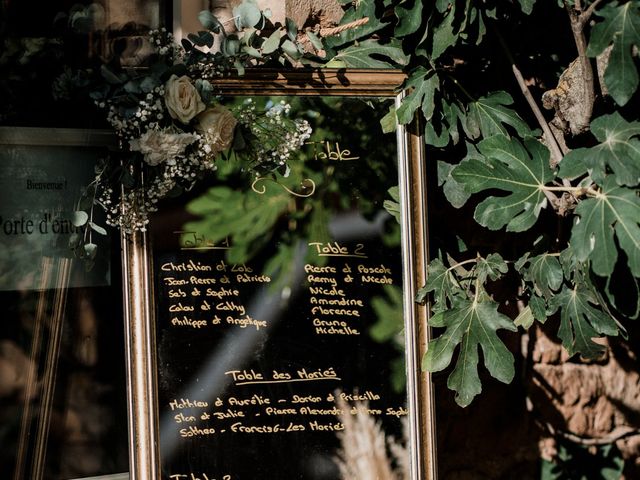 Bienvenue !
Porte d'ent
Table
Table 1
Christian et Lolo
Jean.Pierre et Patricia
Seb et Sophie
Calou et Cathy
Philippe et Angelique
Table 2
Pierre et Pascale
Remy et Nicole
Nicole
Amandine
Florence
Bruno
Michelle
Table des Mariés
Mathieu et Aurélie - Dorian et Priscilla
et Julie - Pierre Alexandre et Anne Sophie
- Francis - Les Mariés
Table